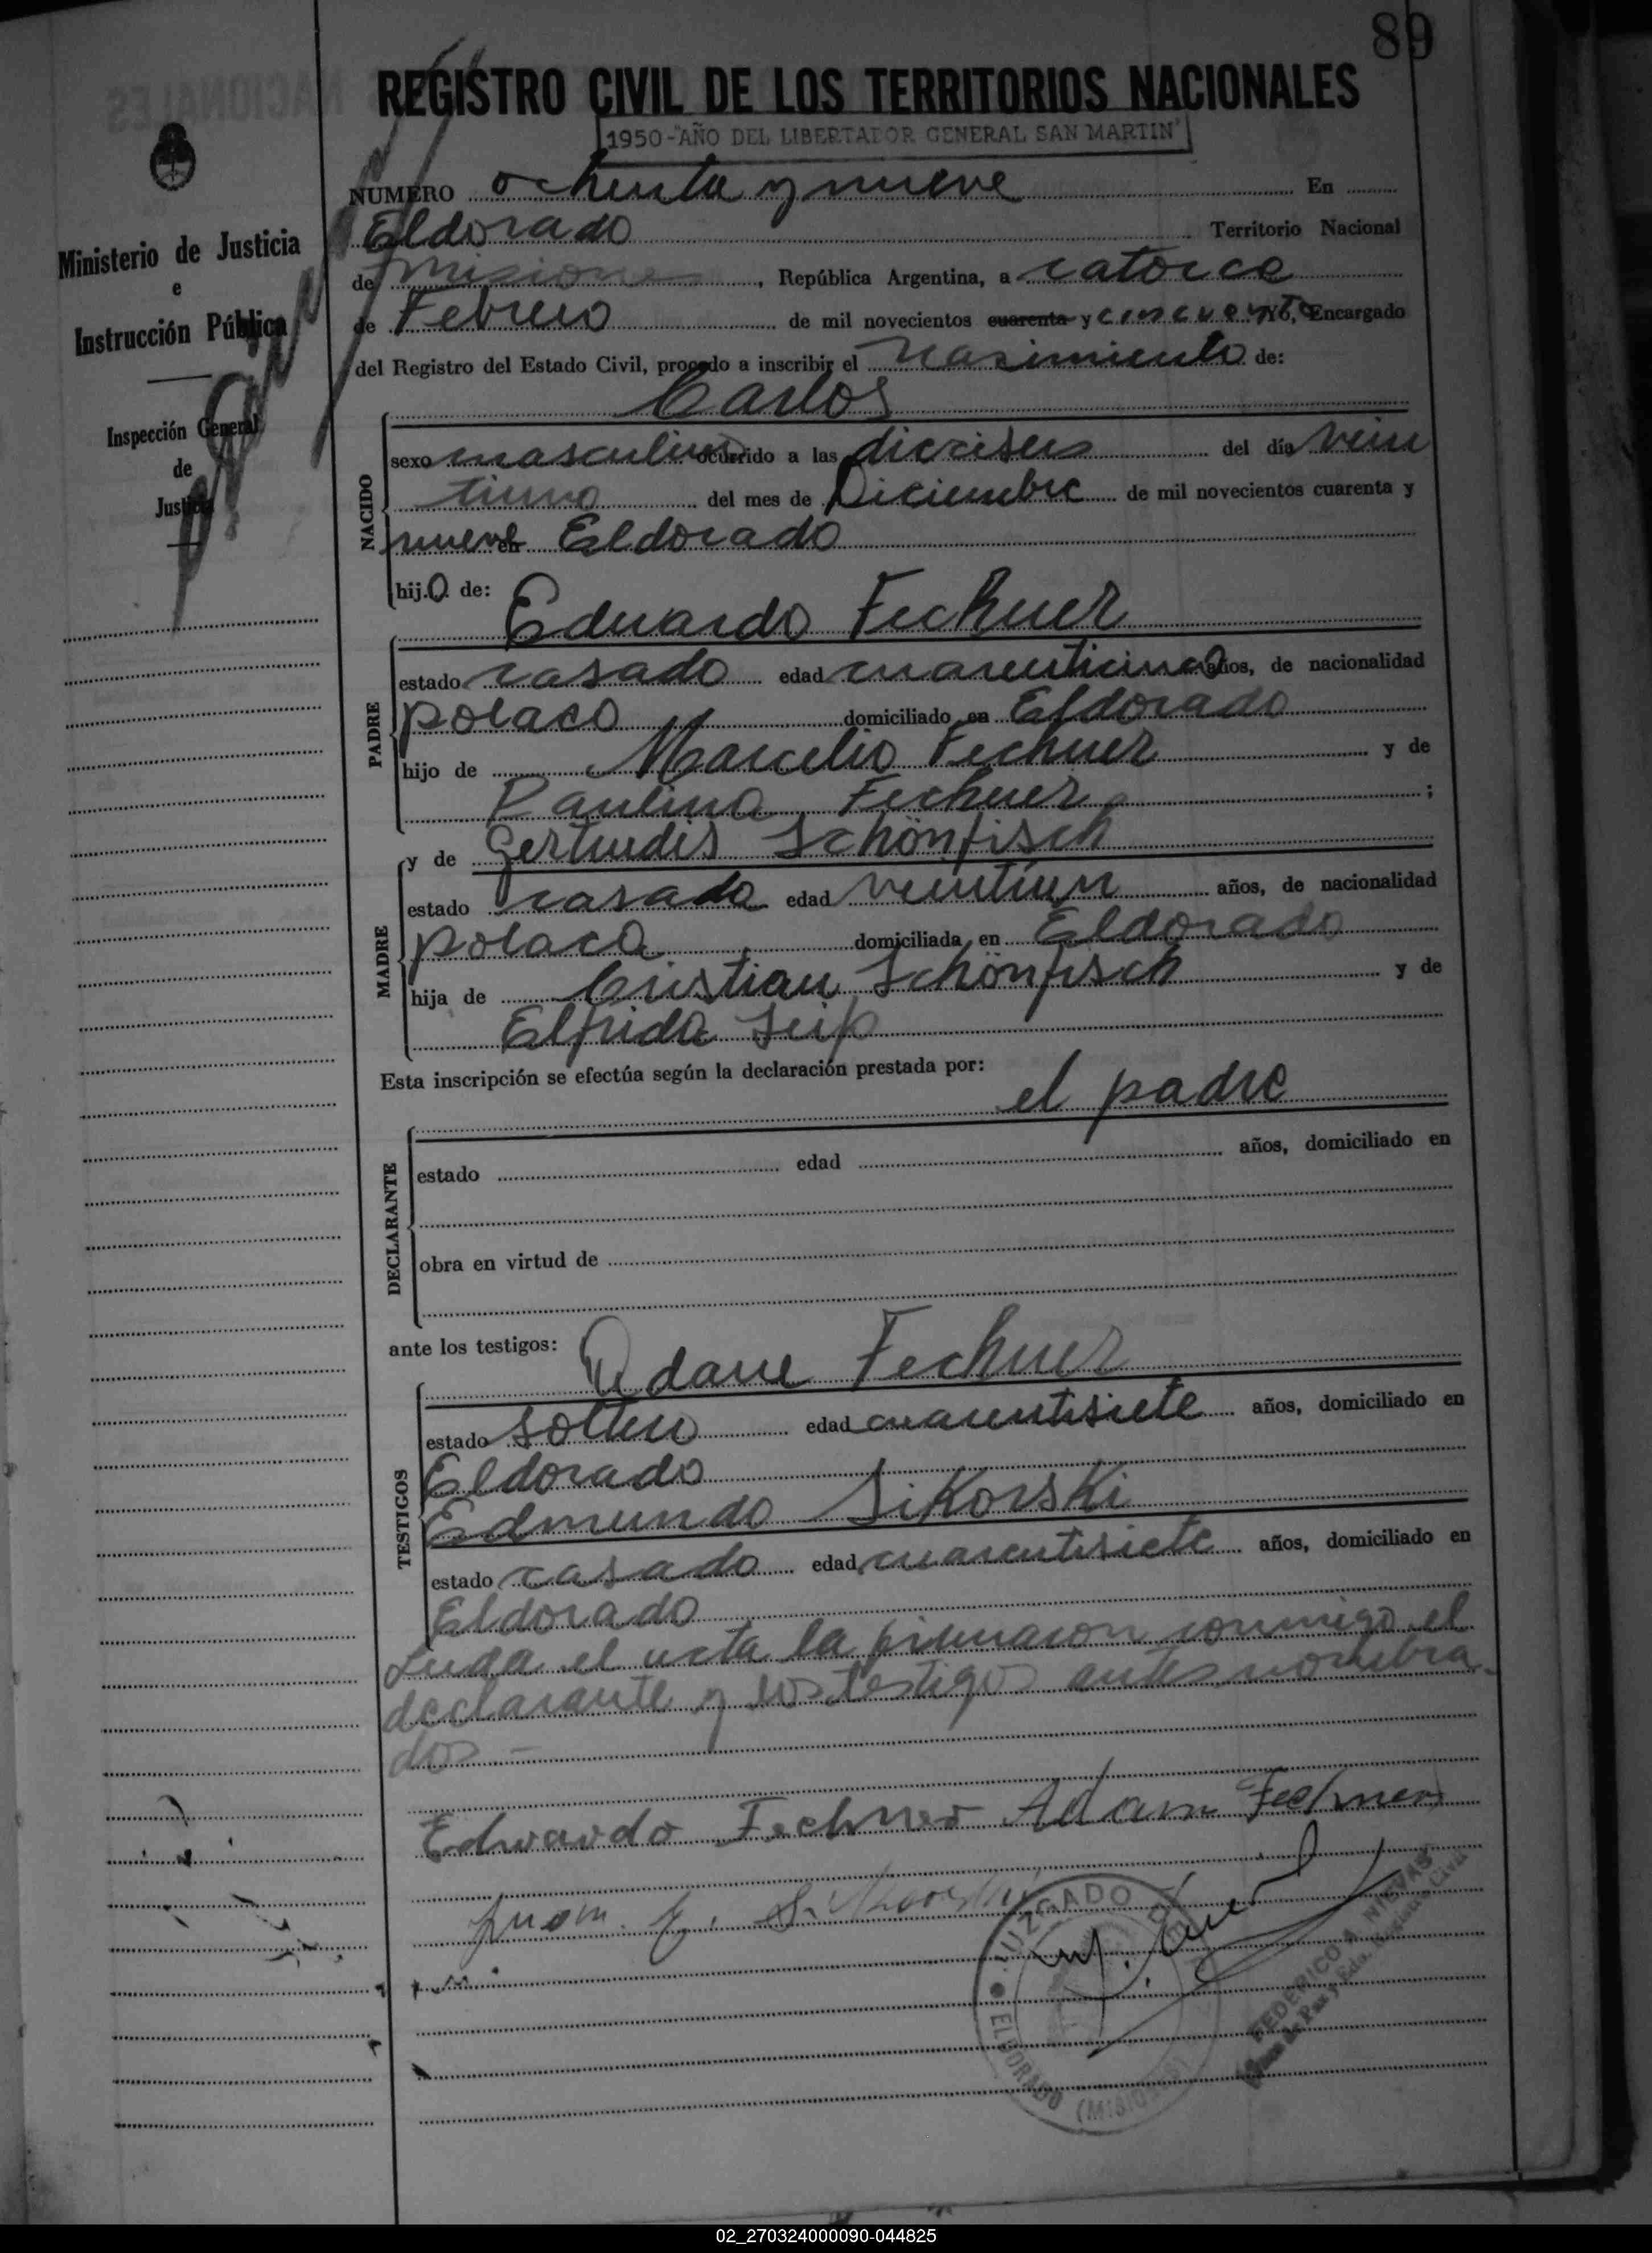 89
REGISTRO CIVIL DE LOS TERRITORIOS NACIONALES
1950-"AÑO DEL LIBERTADOR GENERAL SAN MARTIN"
Ministerio de Justicia
e
Instrucción Pública
Inspección General
de
Justicia
NUMERO ochenta y nueve En
Eldorado Territorio Nacional
de Misiones, República Argentina, a catorce
de Febrero de mil novecientos cuarenta y cincuenta, Encargado
del Registro del Estado Civil, procedo a inscribir el nasimiento de:
Carlos
NACIDO
sexo masculino ocurrido a las dieciseis del día vein
tiuno del mes de Diciembre de mil novecientos cuarenta y
nueve en Eldorado
hijo de:
Eduardo Fechner
PADRE
estado casado edad cuarenticinco años, de nacionalidad
polaco domiciliado en Eldorado
hijo de Marcelio Fechner y de
Paulina Fechner ;
y de Gertrudis Schönfisch
MADRE
estado casada edad veintiun años, de nacionalidad
polaca domiciliada en Eldorado
hija de Cristian Schönfisch y de
Elfrida Seip
Esta inscripción se efectúa según la declaración prestada por:
el padre
DECLARANTE
estado edad años, domiciliado en
obra en virtud de
ante los testigos:
Adam Fechner
TESTIGOS
estado soltero edad cuarentisiete años, domiciliado en
Eldorado
Edmundo Sikorski
estado casado edad cuarentisiete años, domiciliado en
Eldorado
Leida el acta la firmaron conmigo el
declarante y los testigos antes nombra-
dos -
Eduardo Fechner Adam Fechner
JUZGADO DE
ELDORADO
(MISIONES)
FEDERICO A. NIEVAS
Juez de Paz y Edo. Registro Civil
02_270324000090-044825